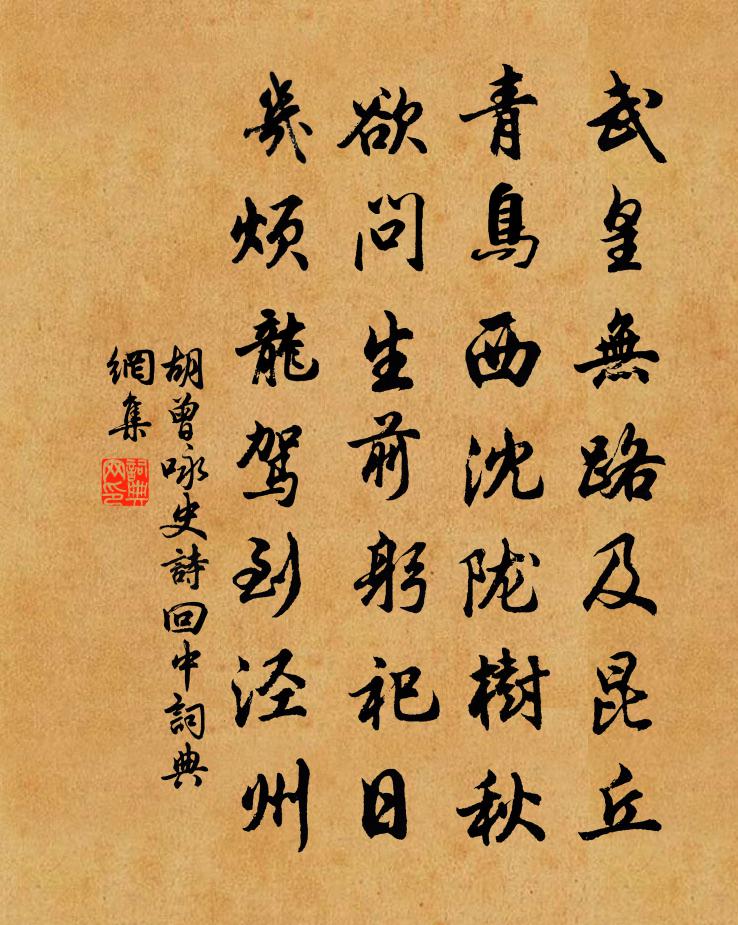 武皇無路及昆丘
青鳥西沈陇樹秋
欲問生前躬祀日
幾煩龍駕到泾州
胡曾咏史詩回中詞典
網集
詞典
网印